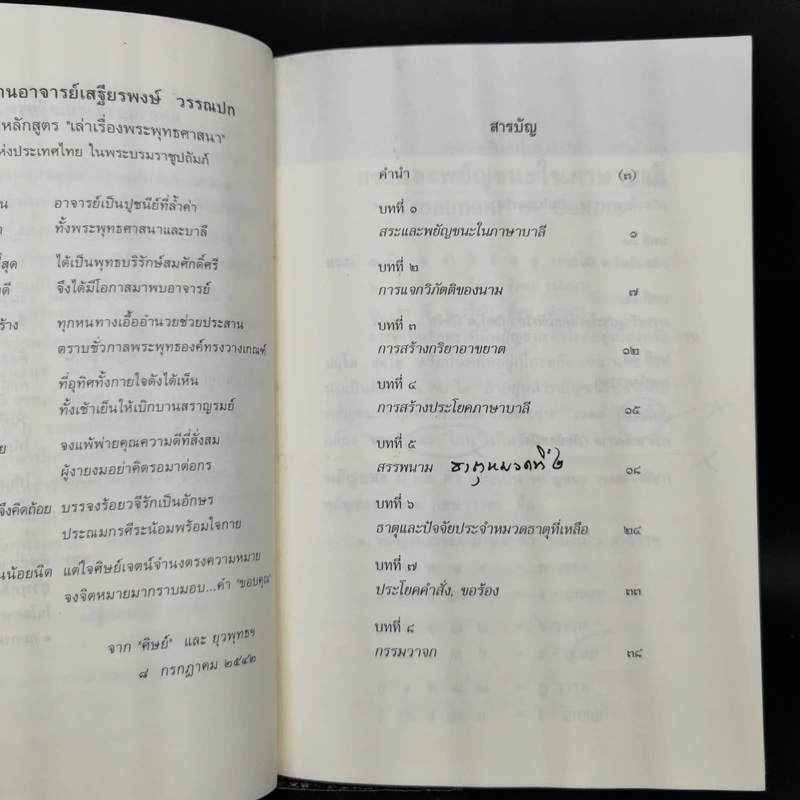 านอาจารย์เสฐียรพงษ์ วรรณปก
หลักสูตร "เล่าเรื่องพระพุทธศาสนา"
ห่งประเทศไทย ในพระบรมราชูปถัมภ์
อาจารย์เป็นปูชนีย์ที่ล้ำค่า
ทั้งพระพุทธศาสนาและบาลี
ที่สุด ได้เป็นพุทธบริรักษ์สมศักดิ์ศรี
งดี จึงได้มีโอกาสมาพบอาจารย์
ร้าง ทุกหนทางเอื้ออำนวยช่วยประสาน
ตราบชั่วกาลพระพุทธองค์ทรงวางเกณฑ์
ที่อุทิศทั้งกายใจดังได้เห็น
ทั้งเช้าเย็นให้เบิกบานสราญรมย์
จงแพ้พ่ายคุณความดีที่สั่งสม
ผู้งายงมอย่าคิดรอมาต่อกร
จึงคิดถ้อย บรรจงร้อยวจีรักเป็นอักษร
ประณมกรศีระน้อมพร้อมใจกาย
นน้อยนิด แต่ใจศิษย์เจตน์จำนงตรงความหมาย
จงจิตหมายมากราบมอบ...คำ "ขอบคุณ"
จาก "ศิษย์" และ ยุวพุทธฯ
๘ กรกฎาคม ๒๕๔๒
สารบัญ
คำนำ (๓)
บทที่ ๑
สระและพยัญชนะในภาษาบาลี ๑
บทที่ ๒
การแจกวิภัตติของนาม ๗
บทที่ ๓
การสร้างกริยาอาขยาต ๑๒
บทที่ ๔
การสร้างประโยคภาษาบาลี ๑๕
บทที่ ๕
สรรพนาม ธาตุหมวดที่ ๒ ๑๘
บทที่ ๖
ธาตุและปัจจัยประจำหมวดธาตุที่เหลือ ๒๔
บทที่ ๗
ประโยคคำสั่ง, ขอร้อง ๓๓
บทที่ ๘
กรรมวาจก ๓๘